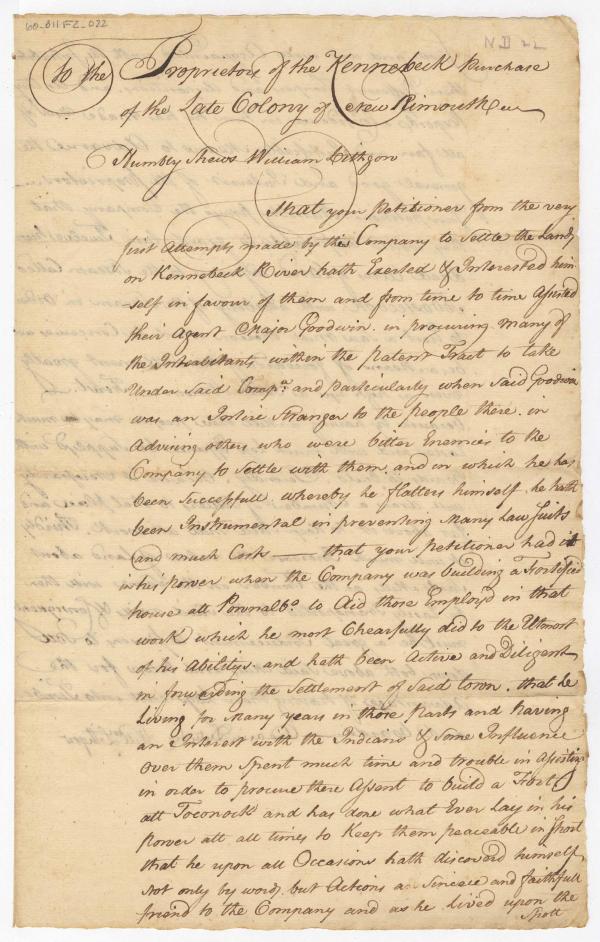 60-011FZ_022
N B 22
To the Proprietors of the Kennebeck Purchase
of the Late Colony of New Plimouth &c
Humbly Shews William Lithgow
That your Petitioner from the very
first Attempts made by the Company to Settle the Lands
on Kennebeck River hath Exerted & Interested him
-self in favour of them and from time to time Assisted
their Agent Major Goodwin in procuring many of
the Inhabitants within the patent Tract to take
Under said Compa. and particularly when said Goodwin
was an Intire Stranger to the people there in
Advising others who were bitter Enemies to the
Company to Settle with them, and in which he has
been Successfull whereby he flatters himself he hath
been Instrumental in preventing Many Law Suits
and much Cost —— that your Petitioner had it
in his power when the Company was building a Fortified
house att Pownalbo. to Aid those Employ'd in that
work which he most Chearfully did to the Utmost
of his Abilitys and hath been Active and Diligent
in forwarding the Settlement of said town. that he
Living for Many years in those Parts and having
an Interest with the Indians & Some Influence
Over them Spent much time and trouble in Assisting
in order to procure there Assent to build a Fort
att Toconock and has done what Ever Lay in his
Power att all times to Keep them peaceable in Short
that he upon all Occasions hath discoverd himself
Not only by words but Actions a Sincere and faithfull
friend to the Company and as he Lived upon the
Spott